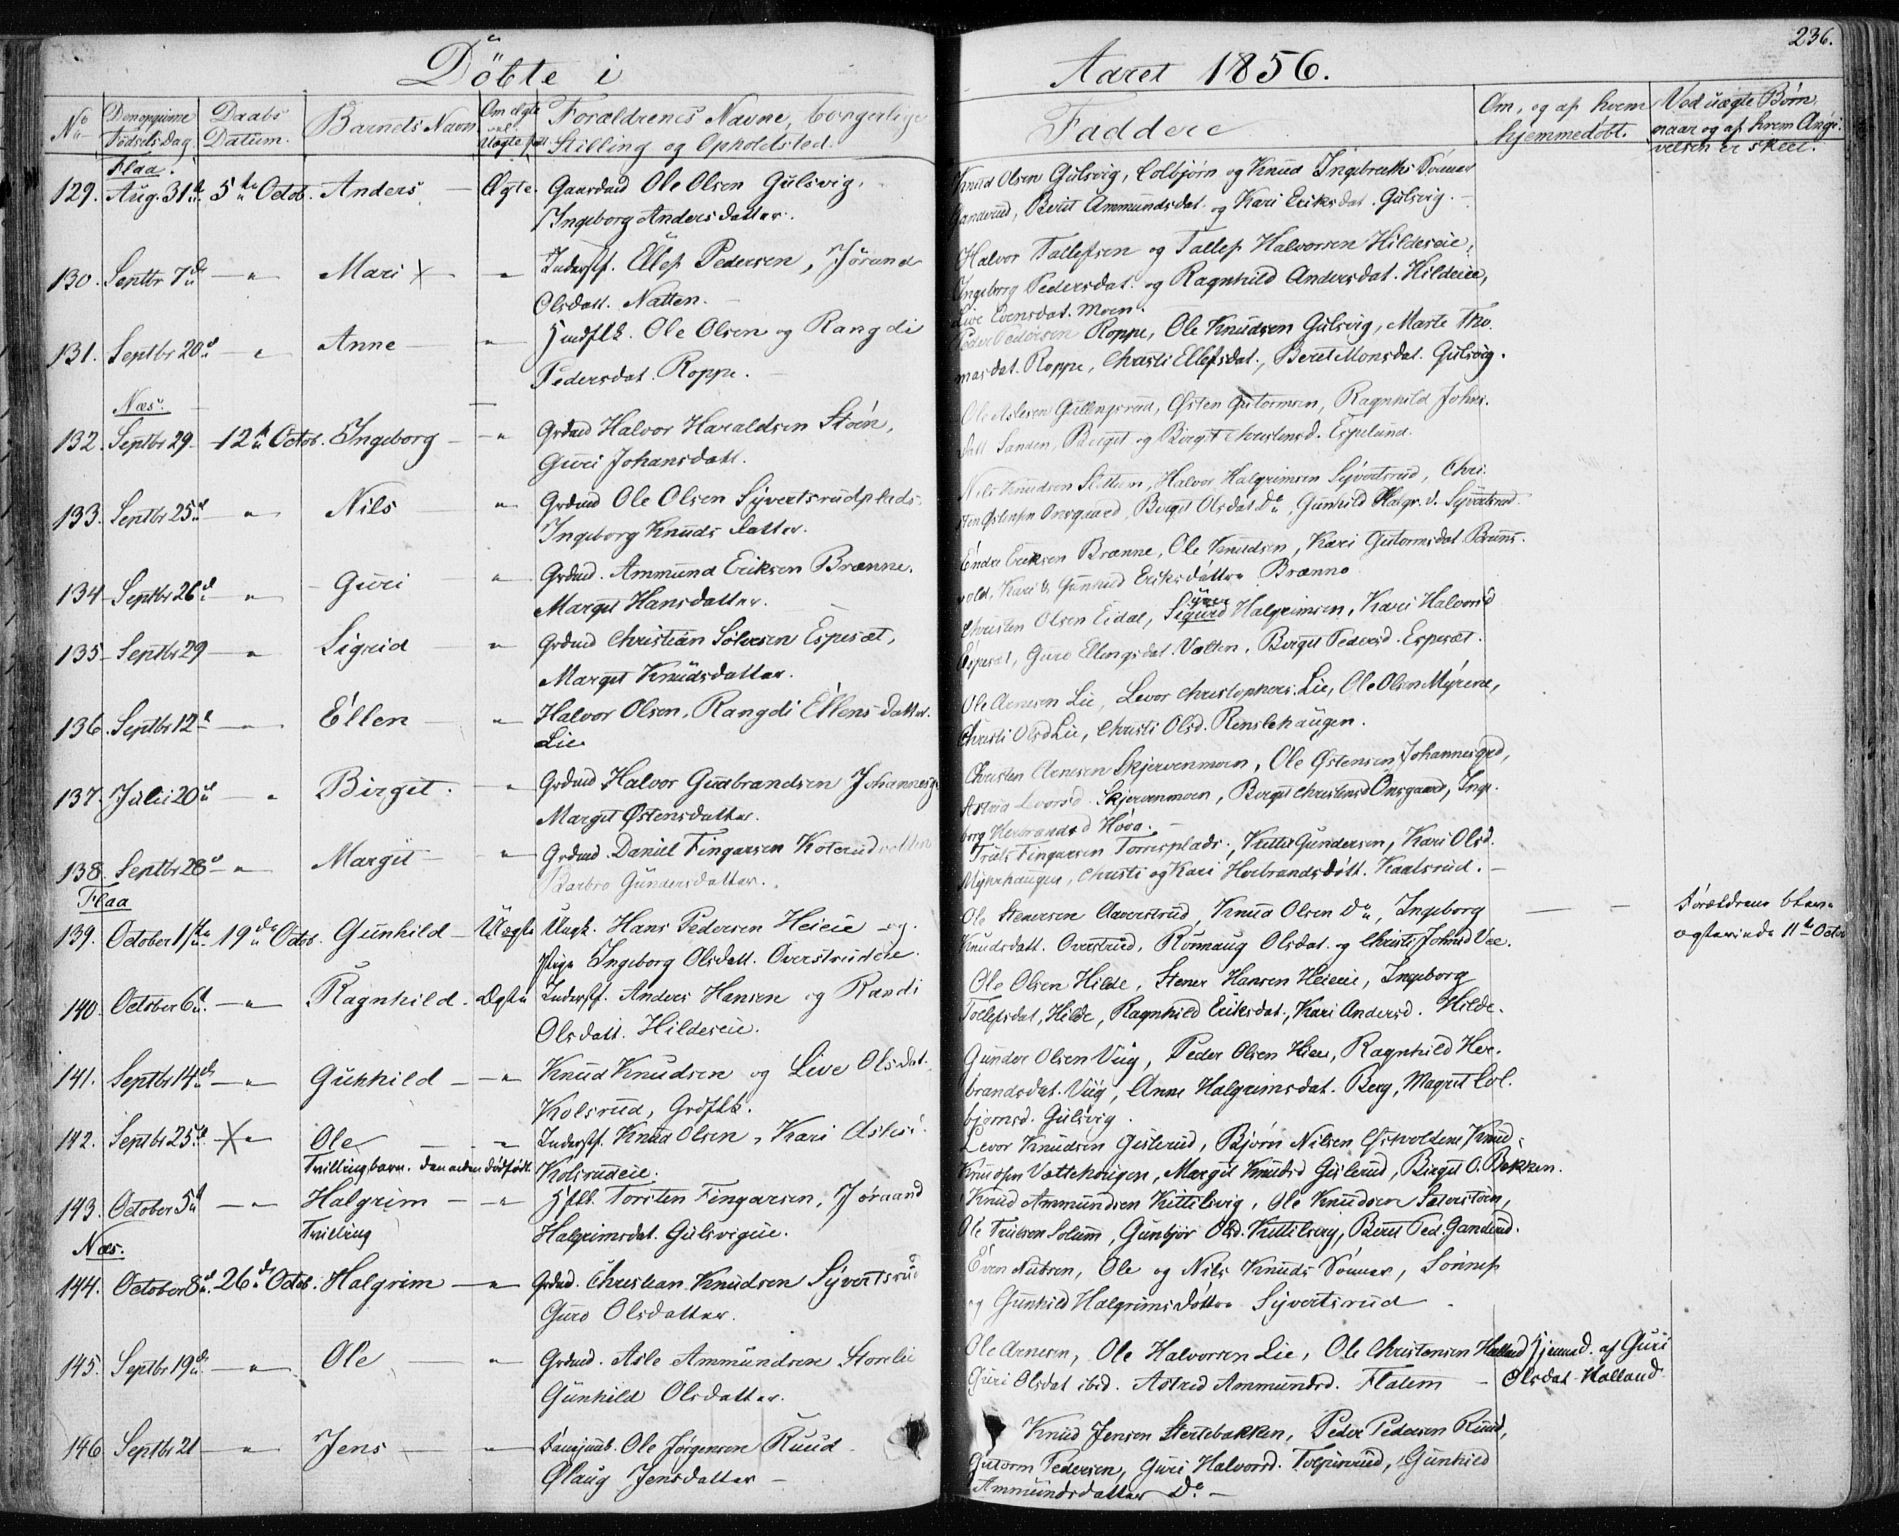 236.
Döbte i Aaret 1856.
No Den opgivne Fødsels Dag Daabs Datum. Barnets Navn Om Ægte vel. Uægte født Forældrenes Navne, borgerlige Stilling og Opholdsted. Faddere Om, og af hvem hjemmedøbt. Ved uægte Børn naar og af hvem Angivelsen er skeet.
Flaa.
129. Aug. 31te 5te Octob. Anders Ægte. Gaardmd Ole Olsen Gulsvig.
Ingeborg Andersdatter.
Knud Olsen Gulsvig, Colbjørn og Knud Ingebreths Sønner
Ganderud, Berit Ammundsdat. og Kari Eriksdat. Gulsvig.
130. Septbr 7de — " Mari X — " Inderstf. Ellef Pedersen, Jørand
Olsdatt. Natten.
Halvor Tallefsen og Tallef Halvorsen Hildeseie,
Ingeborg Pedersdat. og Ragnhild Andersdat. Hildeseie,
Live Evensdat. Moen.
131. Septbr 20de — " Anne — " Huusflk. Ole Olsen og Rangdi
Pedersdat. Roppe.
Peder Pedersen Roppe, Ole Knudsen Gulsvig, Marte Tho-
masdat. Roppe, Christi Ellefsdat., Berit Monsdat. Gulsvig.
Næs.
132. Septbr 29 12te Octob. Ingeborg — " Grdmd Halvor Haraldsen Støen,
Guri Johansdatt.
Ole Aslesen Gullingsrud, Østen Gutormsen, Ragnhild Johns-
datt Sanden, Birgit og Birgit Christensd. Espelund.
133. Septbr 25de " Nils " Grdmd Ole Olsen Syvertsrudplads.
Ingeborg Knuds datter.
Nils Knudsen Slettum, Halvor Halgrimsen Syvertsrud, Chri-
sten Østensen Onsgaard, Birgit Olsdat Do, Gunhild Halgr.d. Syvertsrud.
134 Septbr 26de " Guri " Grdmd. Ammund Eriksen Brænne.
Margit Hansdatter.
Endre Eriksen Brænne, Ole Knudsen, Kari Gutormsdat Bruns-
vold, Kari & Gunhild Eriksdøttre Brænno
135 Septbr 29 — " Sigrid " Grdmd Christian Sølvesen Espesæt,
Margit Knudsdatter.
Christen Olsen Eidal, Sigurd Halgrimsen, Kari Halvorsd
Espesæt, Guro Ellingsdat. Valten, Birgit Pedersd. Espesæt.
136. Septbr 12te — " Ellen — " Halvor Olsen, Rangdi Ellens datter.
Lie
Ole Arnesen Lie, Levor Christophers. Lie, Ole Olsen Myrene,
Christi Olsd Lie, Christi Olsd. Renslehaugen.
137. Julii 20de " Birgit. " Grdmd Halvor Gudbrandsen Johannesg.
Margit Østensdatter.
Christen Arnesen Skjervenmoen, Ole Østensen Johannesgrd,
Astrid Levorsd. Skjervenmoen, Birgit Christensd Onsgaard, Inge-
borg Herbrandsd Høva.
138. Septbr 28de — " Margit — " Grdmd. Daniel Fingarsen Koterud
Barbro Gundersdatter.
Truls Fingarsen Torresplads, Kittil Gundersen, Kari Olsd.
Myhrhaugen, Christi og Kari Herbrandsdøtt. Kaatsrud.
Flaa
139. October 1ste 19de Octob. Gunhild — Uægte Ungk. Hans Pedersen Heieie og
Pige Ingeborg Olsdatt. Overstrudeie.
Ole Stenersen Aaverstrud, Knud Olsen Do, Ingeborg
Knudsdatt. Overstrud, Rönnaug Olsdat. og Christi Johnsd Vee.
Forældrene bleve
ægteviede 11te Octo
140. October 6te — " Ragnhild. Ægte Inderstf. Anders Hansen og Randi
Olsdatt. Hildeseie.
Ole Olsen Hilde, Stener Hansen Heieie, Ingeborg
Tollefsdat, Hilde, Ragnhild Eriksdat., Kari Andersd. Hilde.
141. Septbr 14de — " Gunhild — " Knud Knudsen og Live Olsdat.
Kolsrud, Grdflk.
Gunder Olsen Viig, Peder Olsen Hiei, Ragnhild Her-
brandsdat. Viig, Anne Halgrimsdat. Berg, Magrit Col-
bjørnsd. Gulsvig.
142. Septbr 25de X " Ole — " Inderstf. Knud Olsen, Kari Aslesd
Tvillingbarn. den anden dødfødt. Kolsrudeie.
Levor Knudsen Gislerud, Bjørn Nilsen Østvolden, Knud
Knudsen Vættehougen, Margit Knudsd Gislerud, Birgit O. Bakken.
143. October 5te — " Halgrim — " Hflk. Torsten Fingarsen, Jøraand
Tvilling Halgrimsdat. Gulsvigeie.
Knud Ammundsen Kittilsvig, Ole Knudsen Sæterstøen,
Ole Trulsen Solum, Gunbjør Olsd. Kittilsvig, Berit Ped. Ganderud.
Næs.
144. October 8de 26de Octob. Halgrim — " Grdmd. Christian Knudsen Syvertsrud
Guro Olsdatter.
Even Nubsen, Ole og Nils Knuds Sønner, Sønnef
og Gunhild Halgrimsdøttre Syvertsrud
145. Septbr 19de — " Ole — " Grdmd. Asle Ammundsen Storelie
Gunhild Olsdatter.
Ole Arnesen, Ole Halvorsen Lie, Ole Christensen Halland
Guri Olsdat ibid. Astrid Ammundsd. Flatem
Hjemmed. af Guri
Olsdat Halland.
146 Septbr 21 — " Jens — " Ole Jørgensen Ruud
Ølaug Jensdatter —
Knud Jensen Stertebakken, Peder Pedersen Ruud,
Gutorm Pedersen, Guri Halvorsd. Tolpinrud, Gunhild
Ammundsdatter Do. —